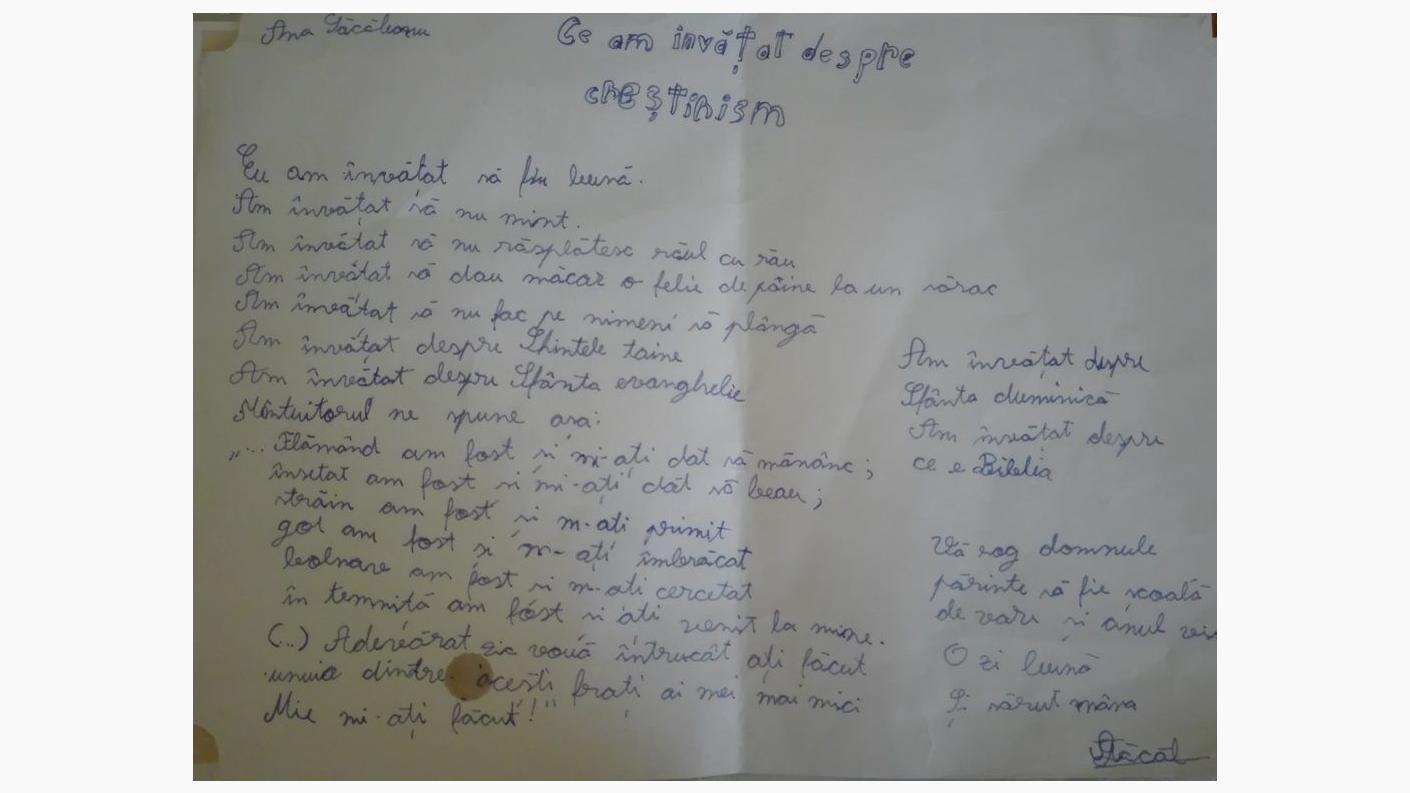 Ana Păcăleanu
Ce am învățat despre
creștinism
Eu am învățat să fiu bună.
Am învățat să nu mint.
Am învățat să nu răsplătesc răul cu rău
Am învățat să dau măcar o felie de pâine la un sărac
Am învățat să nu fac pe nimeni să plângă
Am învățat despre Sfintele taine
Am învătat despre Sfânta evanghelie
Mântuitorul ne spune așa:
„... Flămând am fost si mi-ați dat să mănânc;
însetat am fost si mi-ați dat să beau;
străin am fost si m-ati primit
gol am fost si m-ați îmbrăcat
bolnav am fost si m-ati cercetat
în temnită am fost si ati venit la mine.
(..) Adevărat zic vouă întrucât ați făcut
unuia dintre acești frați ai mei mai mici
Mie mi-ați făcut!"
Am învățat despre
Sfânta duminică
Am învătat despre
ce e Biblia
Vă rog domnule
părinte să fie scoală
de vară și anul
O zi bună
Și sărut mâna